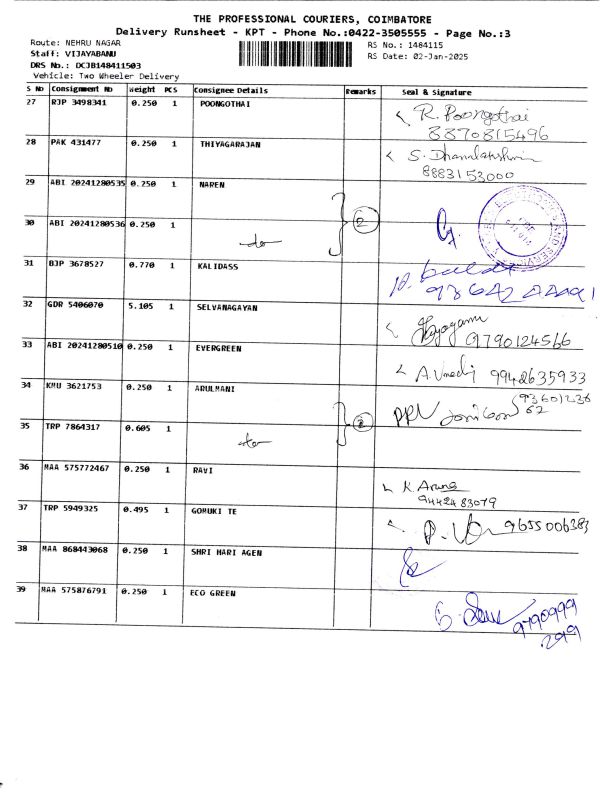 THE PROFESSIONAL COURIERS, COIMBATORE
Delivery Runsheet - KPT - Phone No.:0422-3505555 - Page No.:3
Route: NEHRU NAGAR
RS No.: 1484115
Staff: VIJAYABANU
RS Date: 02-Jan-2025
DRS No.: DCJB148411503
Vehicle: Two Wheeler Delivery
S No Consignment No Weight PCS Consignee Details Remarks Seal & Signature
27 RJP 3498341 0.250 1 POONGOTHAI R. Poongothai
8870815496
28 PAK 431477 0.250 1 THIYAGARAJAN
8883153000
29 ABI 20241280535 0.250 1 NAREN
30 ABI 20241280536 0.250 1 2
do
31 BJP 3678527 0.770 1 KALIDASS
32 GDR 5406070 5.105 1 SELVANAGAYAN
9790124566
33 ABI 20241280510 0.250 1 EVERGREEN
9942635933
34 KMU 3621753 0.250 1 ARULMANI
35 TRP 7864317 0.605 1
36 MAA 575772467 0.250 1 RAVI
K Aruna
9442483079
37 TRP 5949325 0.495 1 GOMUKI TE
9655006383
38 MAA 868443068 0.250 1 SHRI HARI AGEN
39 MAA 575876791 0.250 1 ECO GREEN
9790999
299